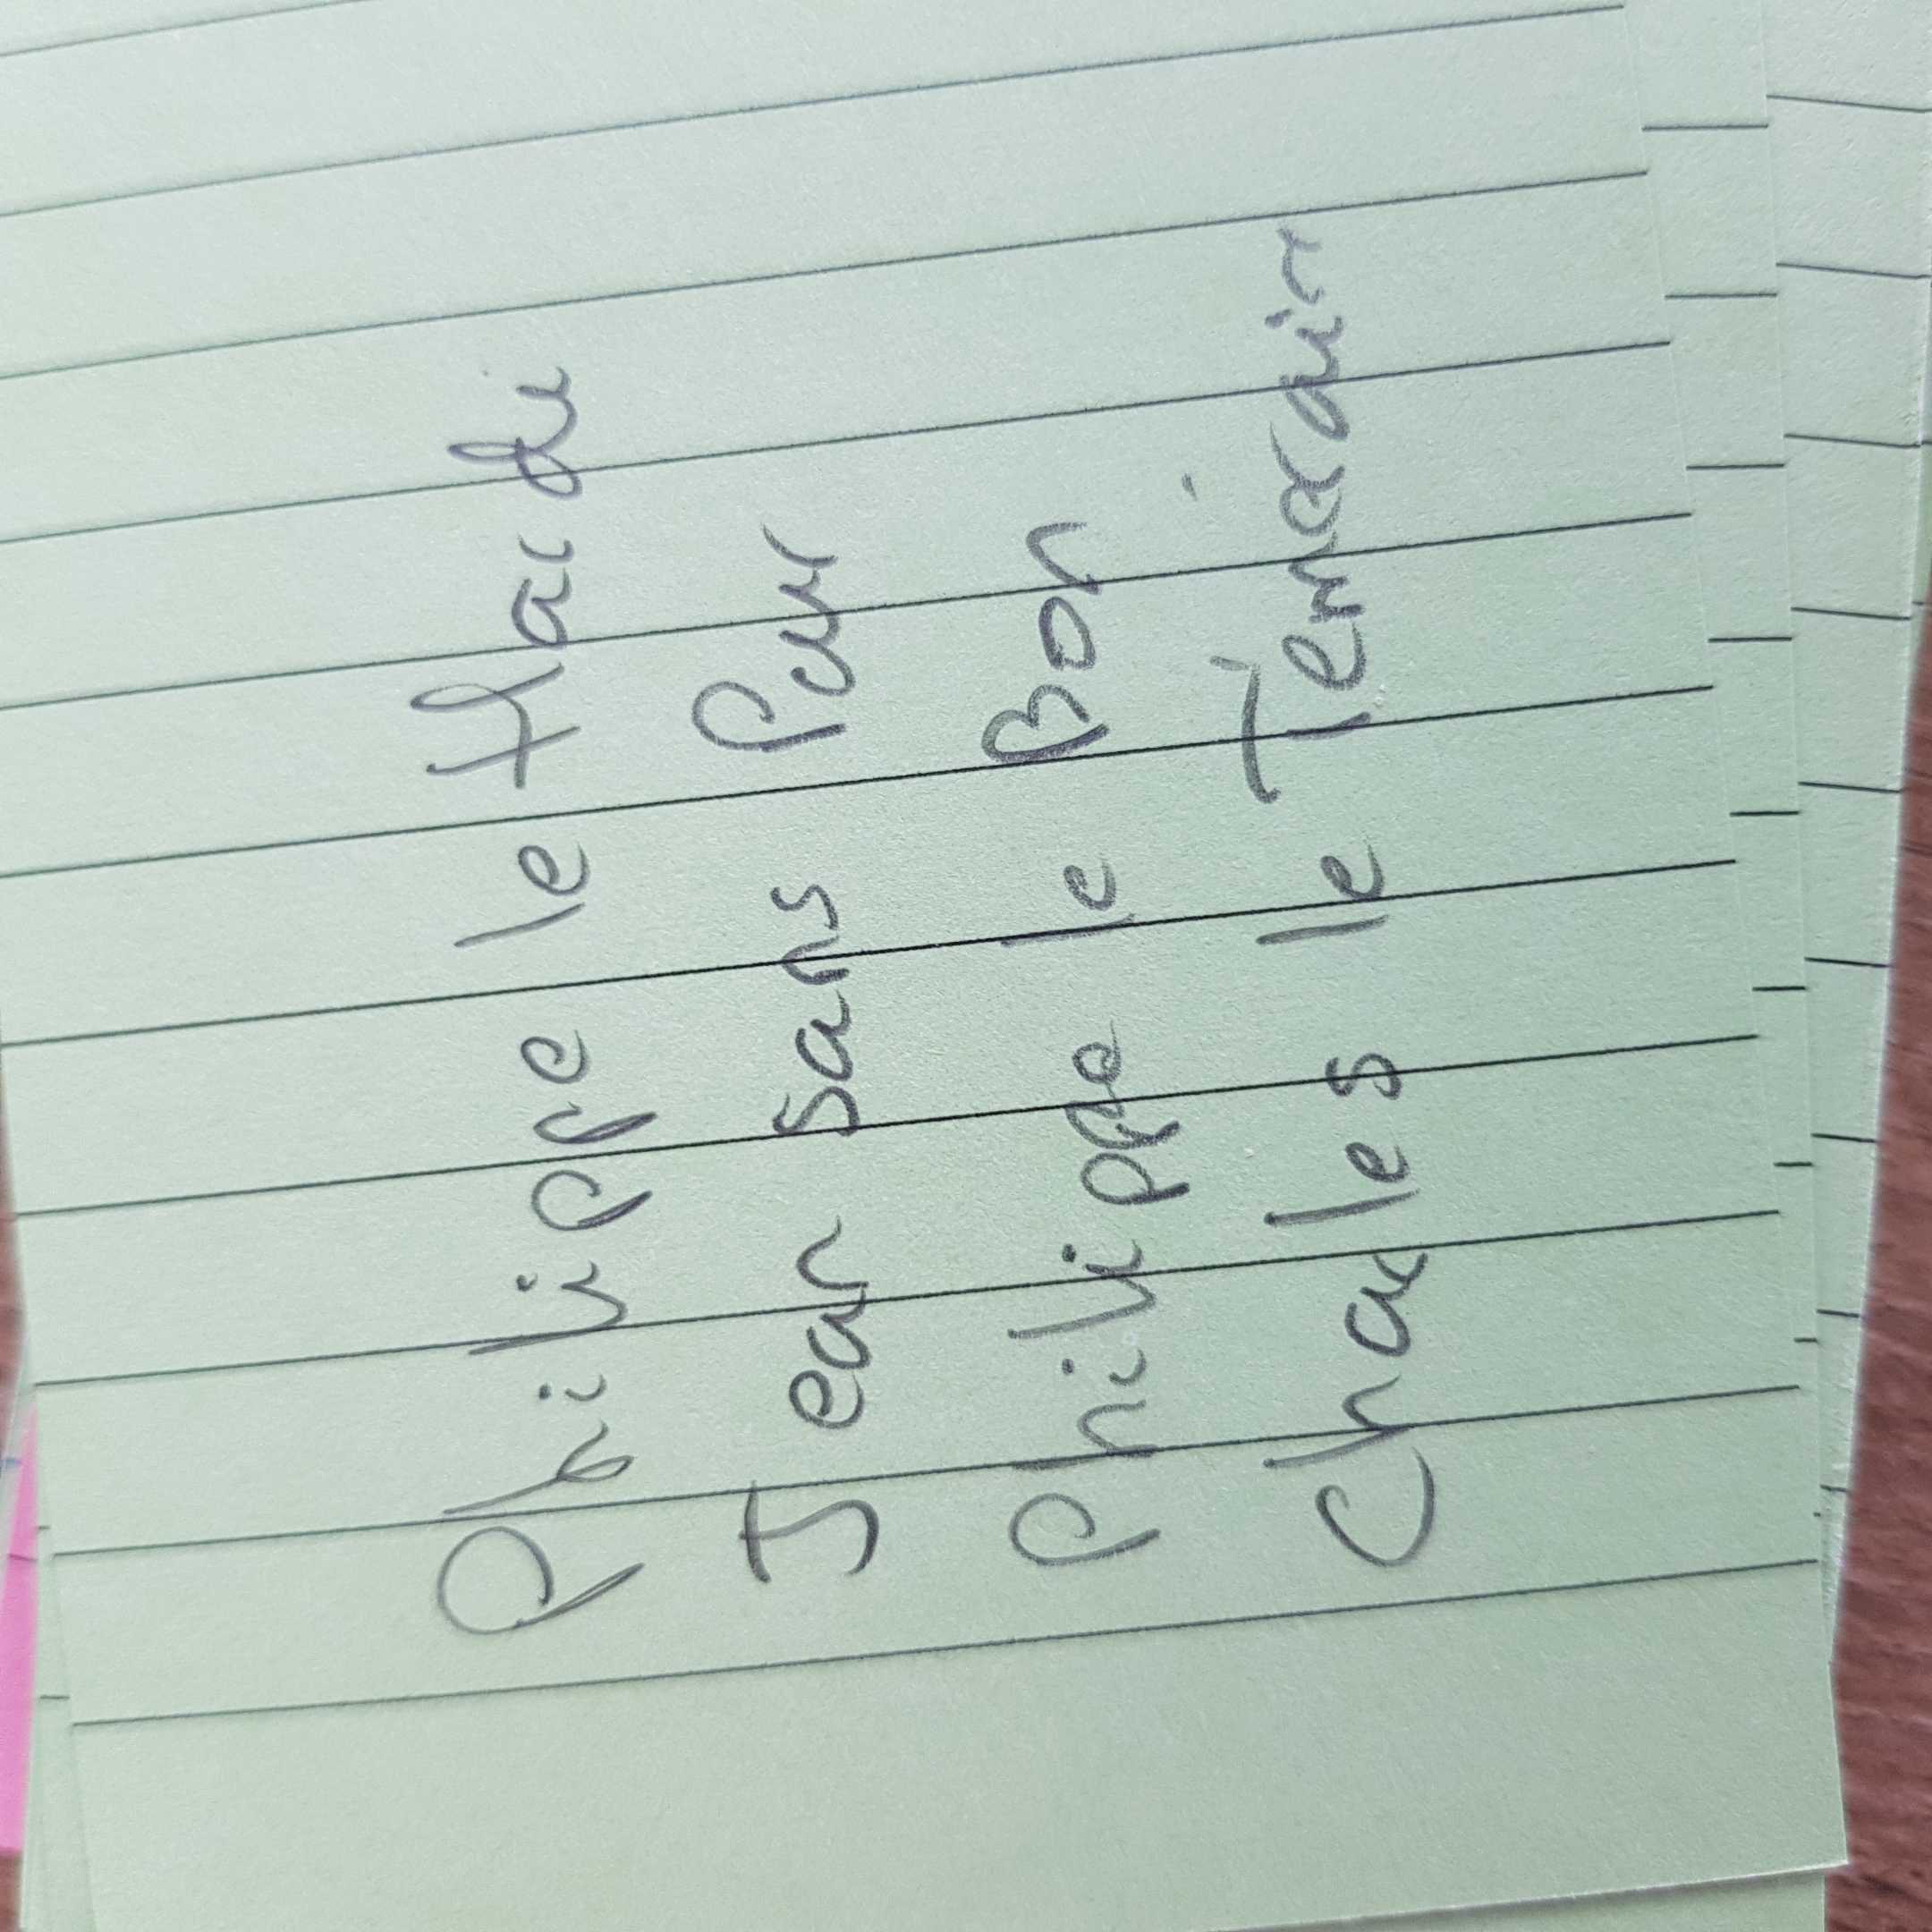 Philippe le Hardi
Jean sans Peur
Philippe le Bon
Charles le Téméraire